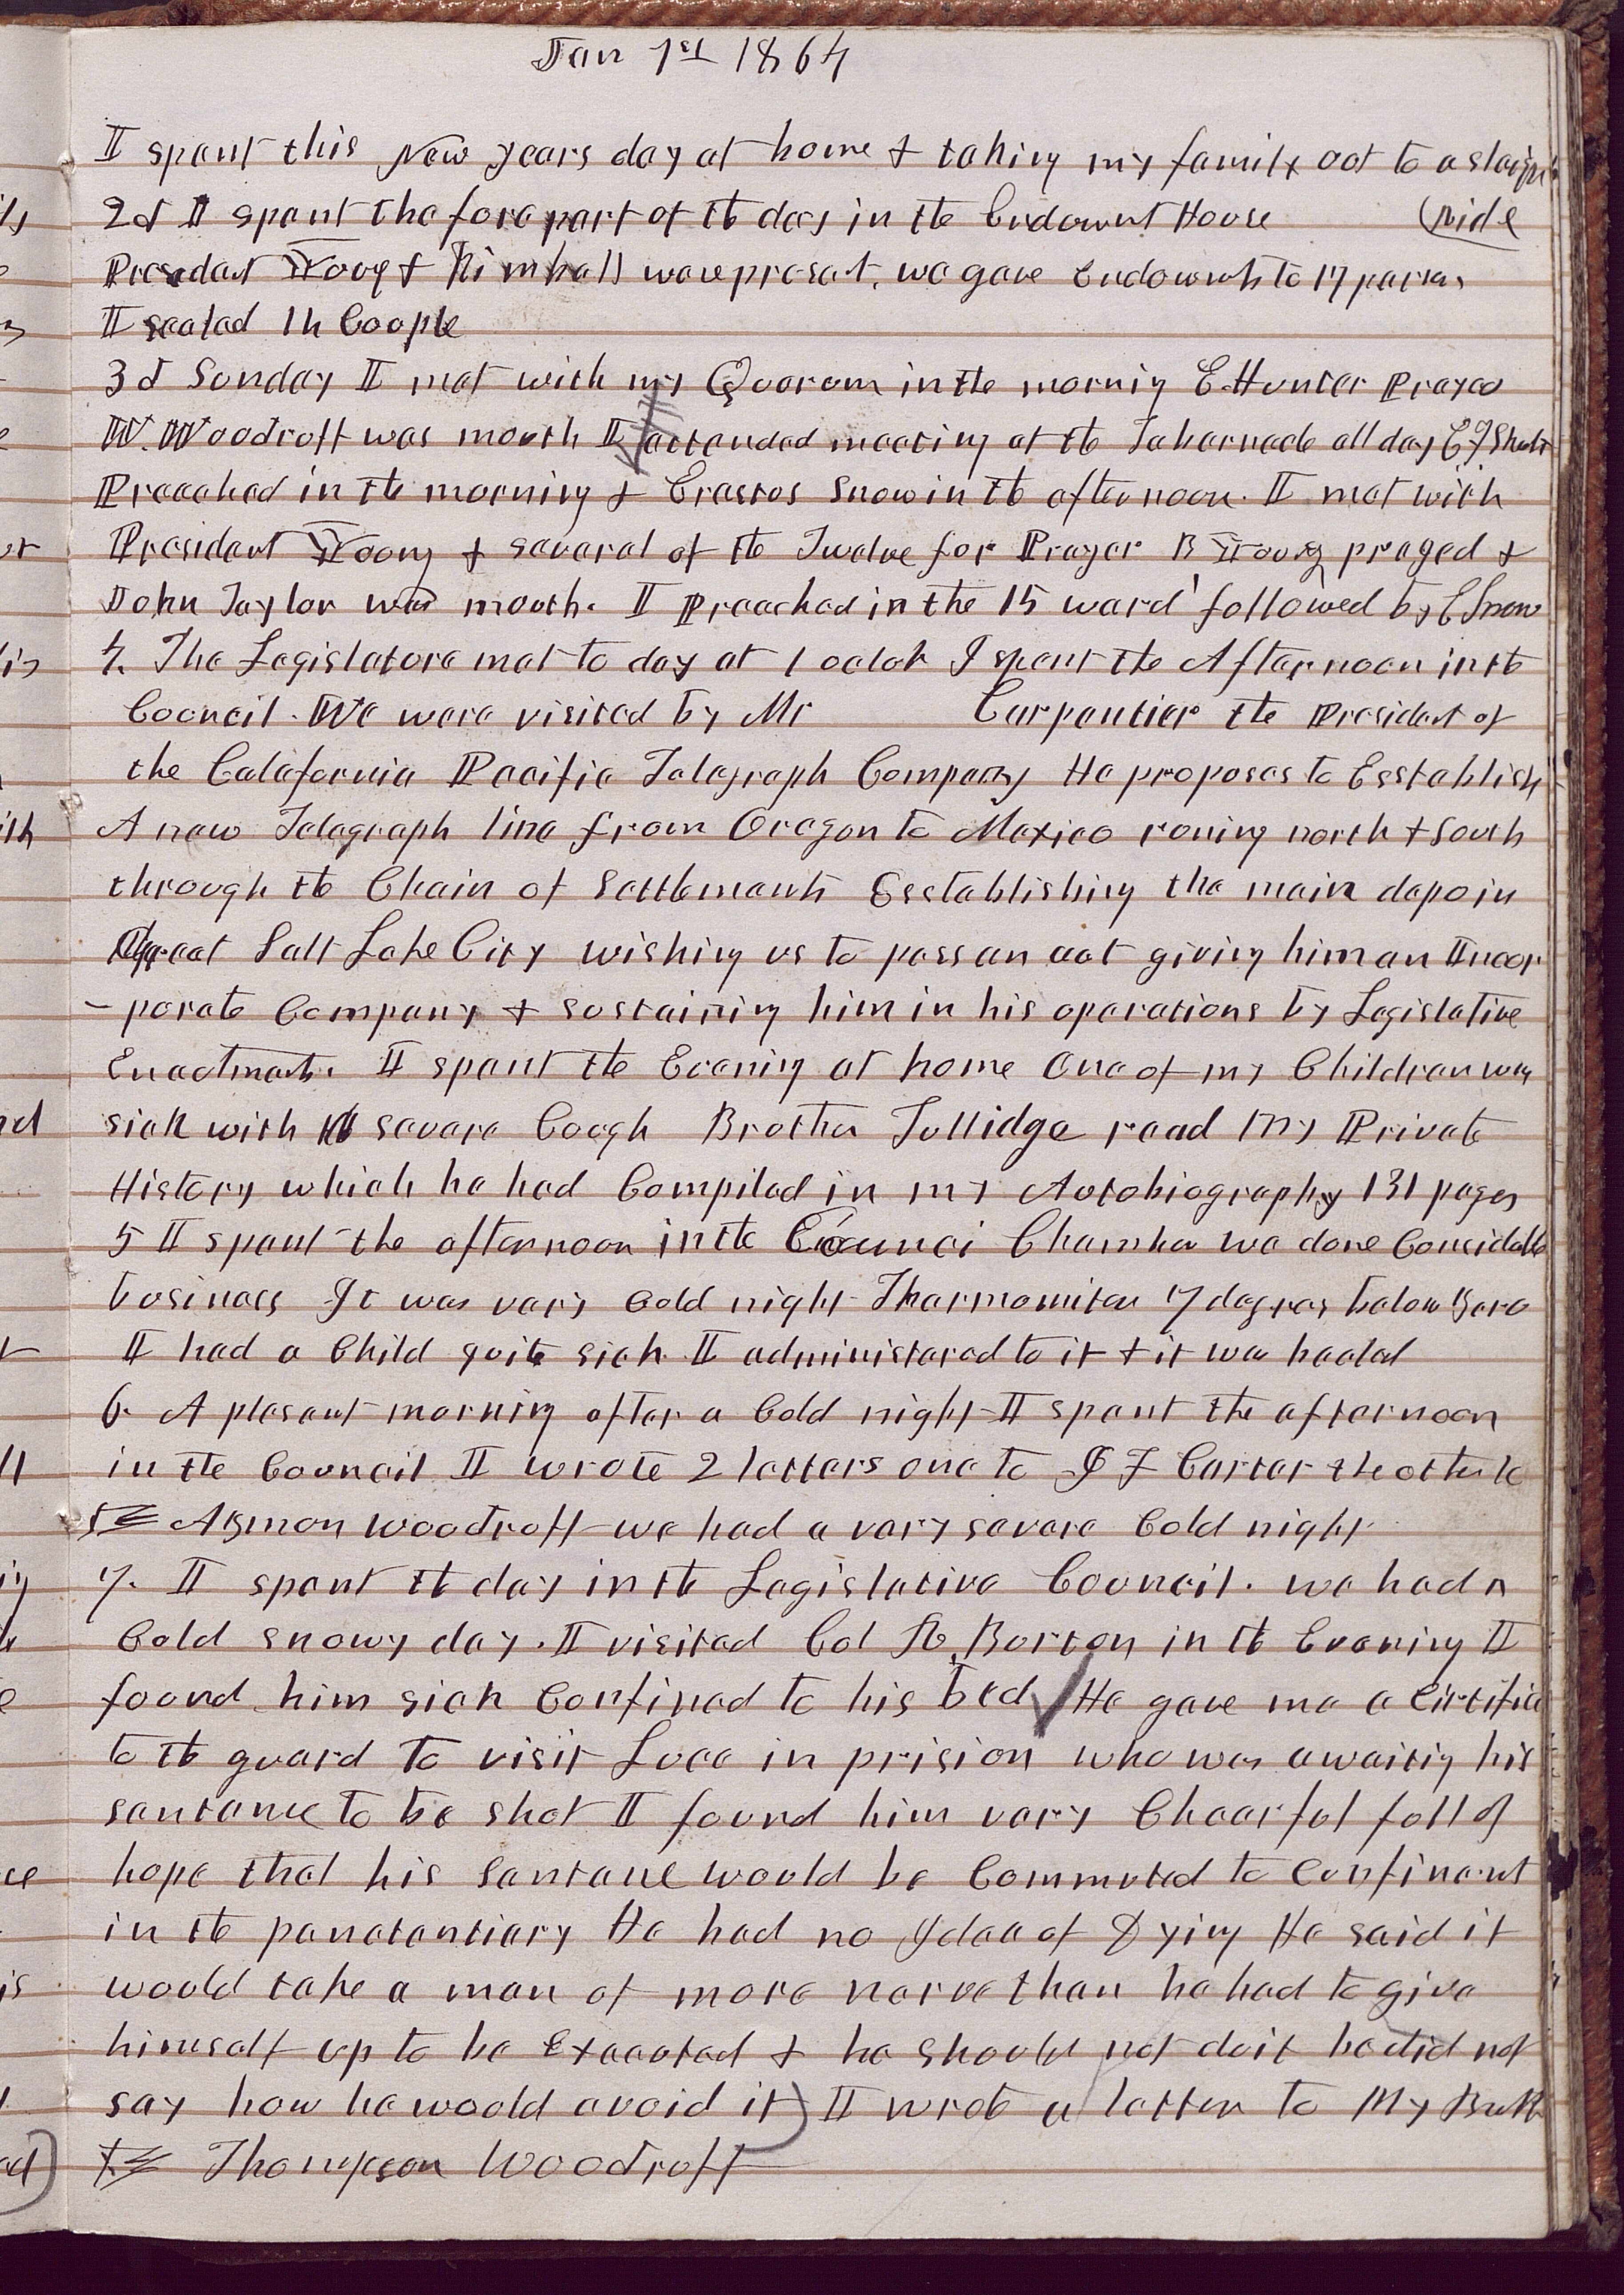 Jan 1st 1864
I spent this New Years day at home & taking my family out to a sleigh
2d I spent the fore part of the day in the Endowmt House (ride
President Young & Kimball were present, we gave Endowmts to 17 persons
I sealed 14 Couple
3d Sunday I met with my Quorum in the morning E Hunter Prayed
W. Woodruff was mouth I attended meeting at the Tabernacle all day
Preached in the morning & Erastus Snow in the afternoon. I met with
President Young & several of the Twelve for Prayer B Young prayed &
John Taylor was mouth. I Preached in the 15 ward followed by E Snow
4. The Legislature met to day at 1 oclok I spent the Afternoon in the
Council. We were visited by Mr Carpentier the President of
the Calafornia Pacific Telegraph Company He proposes to Esstablish
A new Telegraph line from Oregon to Mexico runing north & South
through the Chain of Settlements Esstablishing the main depo in
Great Salt Lake City wishing us to pass an act giving him an Incor
-porate Company & sustaining him in his operations by Legislative
Enactments. I spent the Evening at home One of my Children was
sick with severe Cough Brother Tullidge read my Private
History which he had Compiled in my Autobiography 131 pages
5 I spent the afternoon in the Counci Chamber we done Considable
business It was very Cold night Thermomiter 7 degrees below zero
I had a Child quite sick I administered to it & it was healed
6. A plesant morning after a Cold night I spent the afternoon
in the Council I wrote 2 letters one to I F Carter the other to
Asmon Woodruff we had a very severe Cold night
7. I spent the day in the Legislative Council. we had a
Cold snowy day. I visited Col Burton in the Evening I
found him sick Confined to his bed He gave me a Cirtific
to the guard to visit Luce in prision who was awaiting his
sentance to be shot I found him very Cheerful full of
hope that his Sentance would be Commuted to Confinemt
in the penetentiary He had no Idea of Dying He said it
would take a man of more nerve than he had to give
himself up to be Executed & he should not do it he did not
say how he would avoid it) I wrote a letter to My Broth
Thompson Woodruff